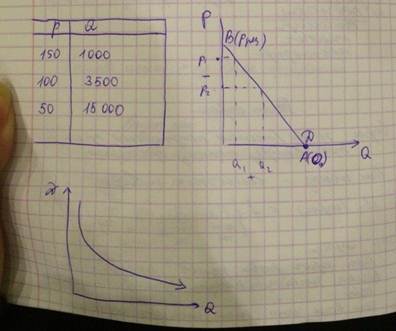 P Q
150 1000
100 3500
50 15 000
P
B(Pmax)
P₁
–
P₂
D
A(Q₀)
Q
Q₁ Q₂
+
Q